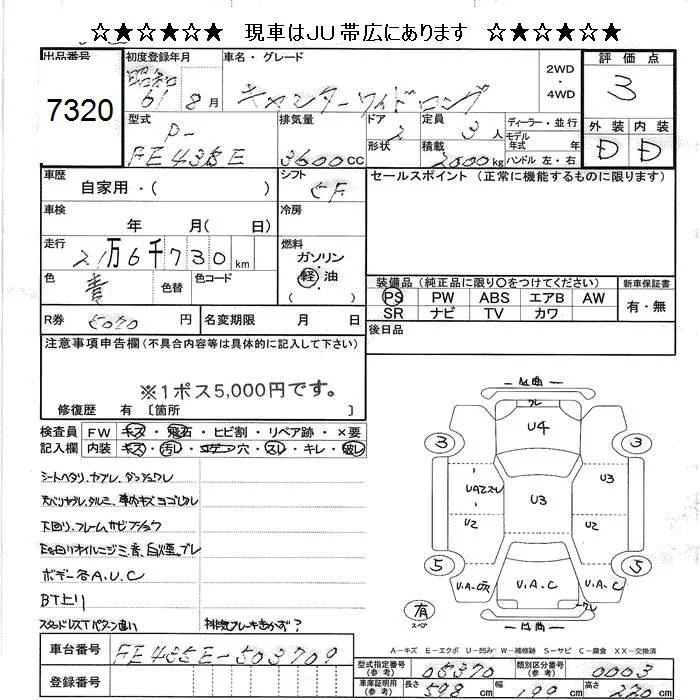 ☆★☆★☆★ 現車はJU帯広にあります ☆★☆★☆★
出品番号 初度登録年月 車名・グレード 2WD ・ 4WD 評価点
7320 昭和 61年 8月 キャンターワイドロング 3
型式 排気量 ドア 定員 ディーラー・並行 外装 内装
P- 2 3人 モデル年式 年
FE435E 3600cc 形状 積載 2000kg ハンドル 左・右 D D
車歴 自家用・( ) シフト 5F セールスポイント (正常に機能するものに限ります)
車検 年 月( 日) 冷房
走行 21万6千730km 燃料 ガソリン 軽・油 ( )
色 青 色替 色コード
装備品 (純正品に限り○をつけてください) 新車保証書
PS PW ABS エアB AW 有・無
SR ナビ TV カワ
R券 5070円 名変期限 月 日 後日品
注意事項申告欄(不具合内容等は具体的に記入して下さい)
※1ポス5,000円です。
修復歴 有 [箇所 ]
検査員 FW キズ・飛石・ヒビ割・リペア跡・×要
記入欄 内装 キズ・汚レ・コゲ・穴・スレ・キレ・破レ
シートヘタリ、
下回り、フレームサビ
ボデー各A.U.C
BT上リ
スタッドレスTパターン違い
排気ブレーキきかず?
クレ
U4
3 3
U3
U3
U2 U2
5 5
U.A.C U.A.C
有
スペア
A-キズ E-エクボ U-凹み W-補修跡 S-サビ C-腐食 XX-交換済
車台番号 FE435E-503709
登録番号
型式指定番号(参考) 05370 類別区分番号(参考) 0003
車庫証明用(参考) 長さ 598cm 幅 199cm 高さ 220cm